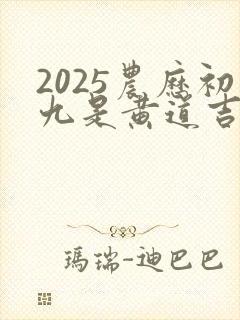 2025農歷初
九是黃道吉
瑪瑞-迪巴巴